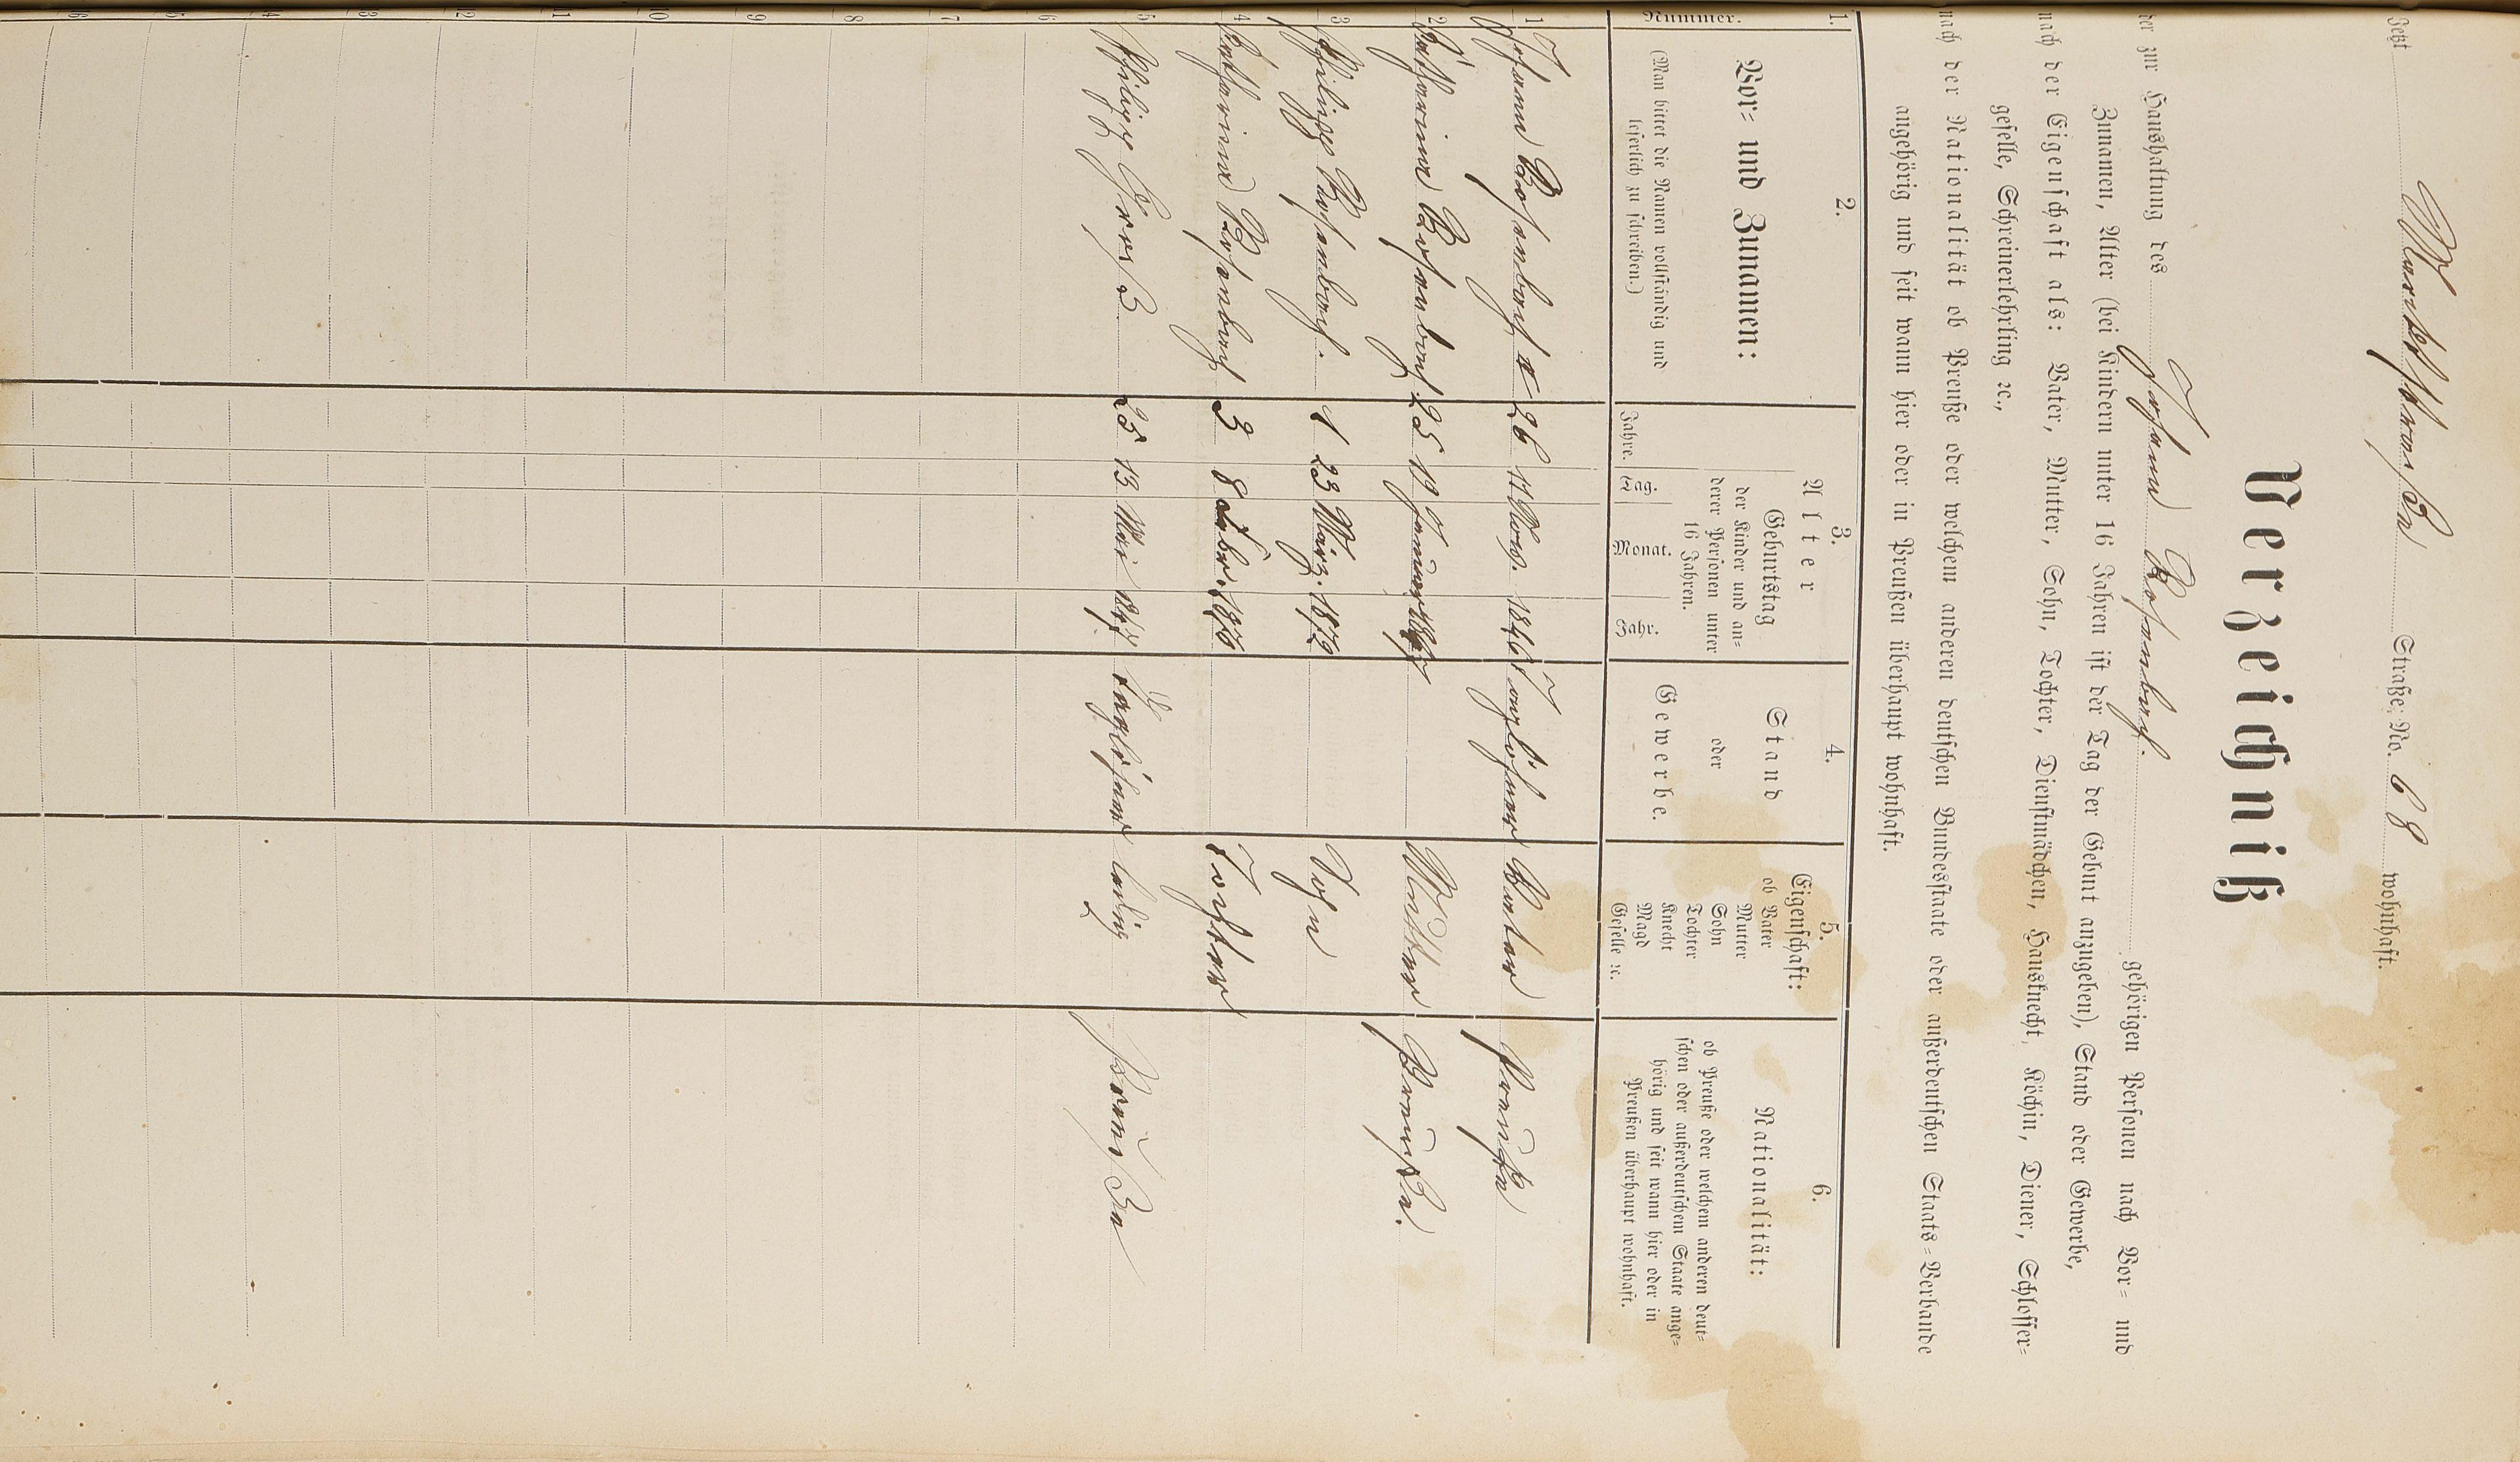 Jetzt Marktstraße Straße: No. 68 wohnhaft.
Verzeichniß
der zur Haushaltung des Johann Rosenbach gehörigen Personen nach Vor= und
Zunamen, Alter (bei Kindern unter 16 Jahren ist der Tag der Geburt anzugeben), Stand oder Gewerbe,
nach der Eigenschaft als: Vater, Mutter, Sohn, Tochter, Dienstmädchen, Hausknecht, Köchin, Diener, Schlosser=
geselle, Schreinerlehrling ꝛc.,
nach der Nationalität ob Preuße oder welchem anderen deutschen Bundesstaate oder außerdeutschen Staats=Verbande
angehörig und seit wann hier oder in Preußen überhaupt wohnhaft.
1. 2. 3. 4. 5. 6.
Nummer.
Vor= und Zunamen:
(Man bittet die Namen vollständig und
leserlich zu schreiben.)
Alter
Geburtstag
der Kinder und an=
derer Personen unter
16 Jahren.
Jahre. Tag. Monat. Jahr.
Stand
oder
Gewerbe.
Eigenschaft:
ob Vater
Mutter
Sohn
Tochter
Knecht
Magd
Geselle ꝛc.
Nationalität:
ob Preuße oder welchem anderen deut=
schen oder außerdeutschen Staate ange=
hörig und seit wann hier oder in
Preußen überhaupt wohnhaft.
1 Johann Rosenbach 26 11 Nov. 1846 Taglöhner Vater Preuße
2 Katharina Rosenbach 25 19 Januar Mutter Preuße.
3 Philipp Rosenbach. 1 23 März. 1872 Sohn
4 Katharina Rosenbach 3 8 1870 Tochter
5 Philipp 25 13 Mai 1847 Taglöhner ledig Preuße
6
7
8
9
10
11
12
13
14
15
16